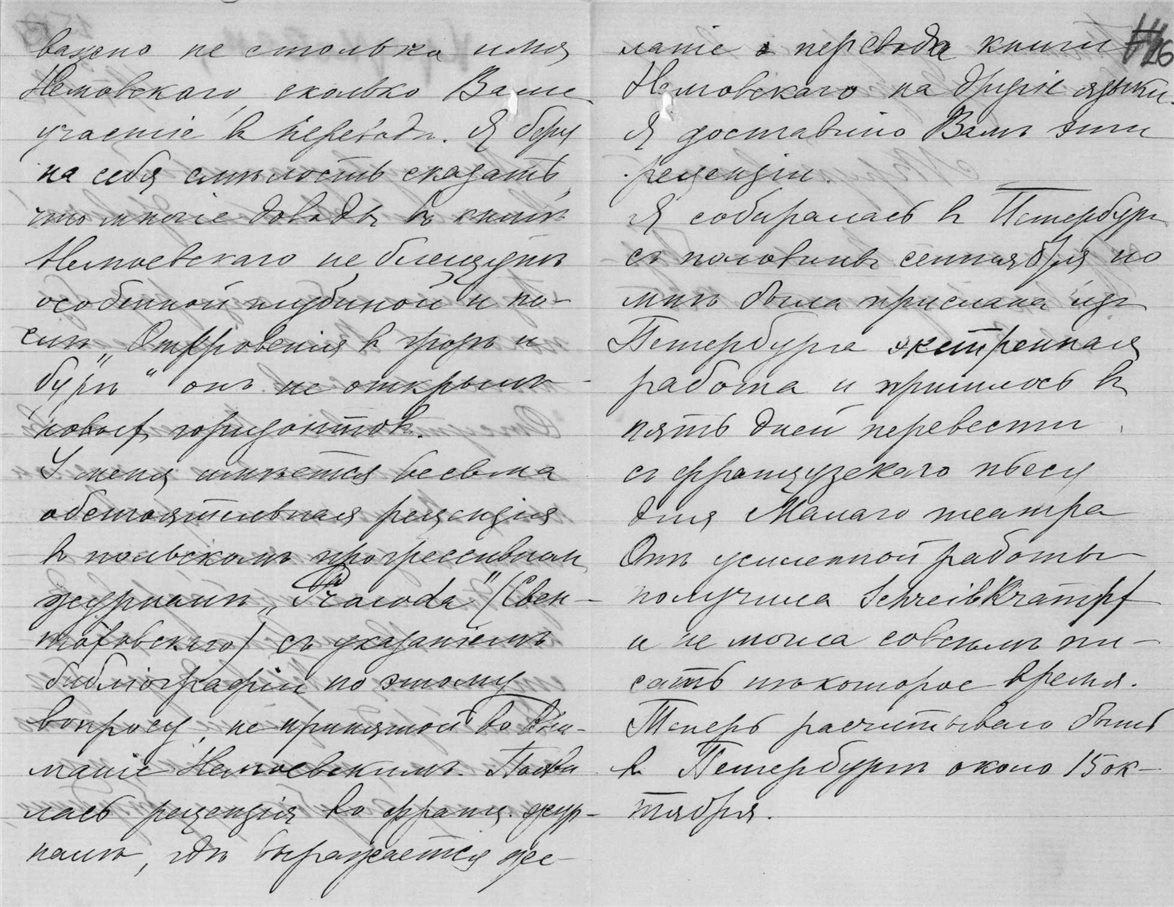 важно не столько имя
Немовского, сколько Ваше
участіе в переводѣ. Я беру
на себя смѣлость сказать,
что многіе доводы в книгѣ
Немоевскаго не блещутъ
особенной глубиной и по-
слѣ „Откровенія в грозѣ и
бурѣ" онъ не открылъ
новых горизонтов.
У меня имѣется весьма
обстоятельная рецензія
в польскомъ прогрессивном
журналѣ „Prawda" (Свен-
тоховскаго) съ указаніемъ
библіографіи по этому
вопросу, не принятой во вни-
маніе Немоевскимъ. Появи
лась рецензія во франц. жур-
налѣ, гдѣ выражается же-
ланіе перевода книги
Немовскаго на другіе языки
Я доставлю Вамъ эти
рецензіи.
Я собиралась в Петербург
съ половины сентября но
мнѣ была прислана изъ
Петербурга экстренная
работа и пришлось в
пять дней перевести
съ французскаго пьесу
для Малаго театра
Отъ усиленной работы
получила Schreibkrampf
и не могла совсѣмъ пи-
сать нѣкоторое время.
Теперь расчитываю быть
в Петербургѣ около 15 ок-
тября.